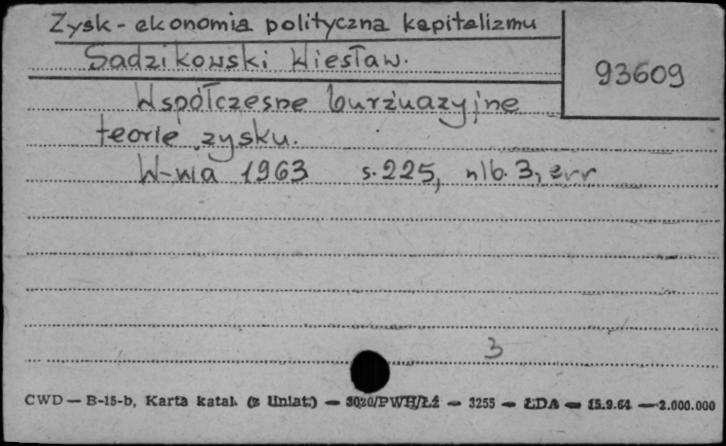 Zysk - ekonomia polityczna kapitalizmu
Sadzikowski Wiesław.
93609
Współczesne burżuazyjne
teorie zysku.
W-wa 1963 s. 225, nlb. 3, err
3
CWD — B-15-b, Karta katal. (z liniat.) — 3020/PWH/Łź — 3255 — ŁDA — 15.9.61 — 2.000.000